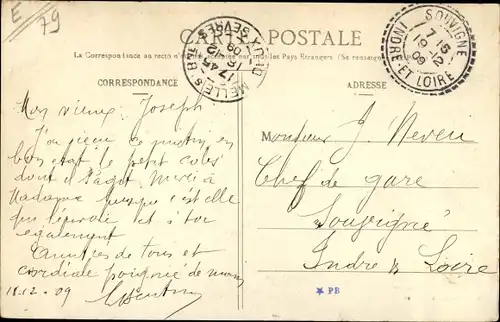 E
79
CARTE POSTALE
La Correspondance au recto n'est pas acceptée par tous les Pays Étrangers. (Se renseigner
CORRESPONDANCE
ADRESSE
MELLE
DEUX SEVRES
17 45
16 12
09
SOUVIGNÉ
7 15
19 12
09
INDRE ET LOIRE
Mon vieux Joseph
J'ai reçu ce matin, en
bon état le petit colis
dont il s'agit. Merci à
Madame
qui et à toi
également
Amitiés de tous et
cordiale poignée de mains
18.12.09
Monsieur J. Neveu
Chef de gare
Souvigné
Indre & Loire
★ PB